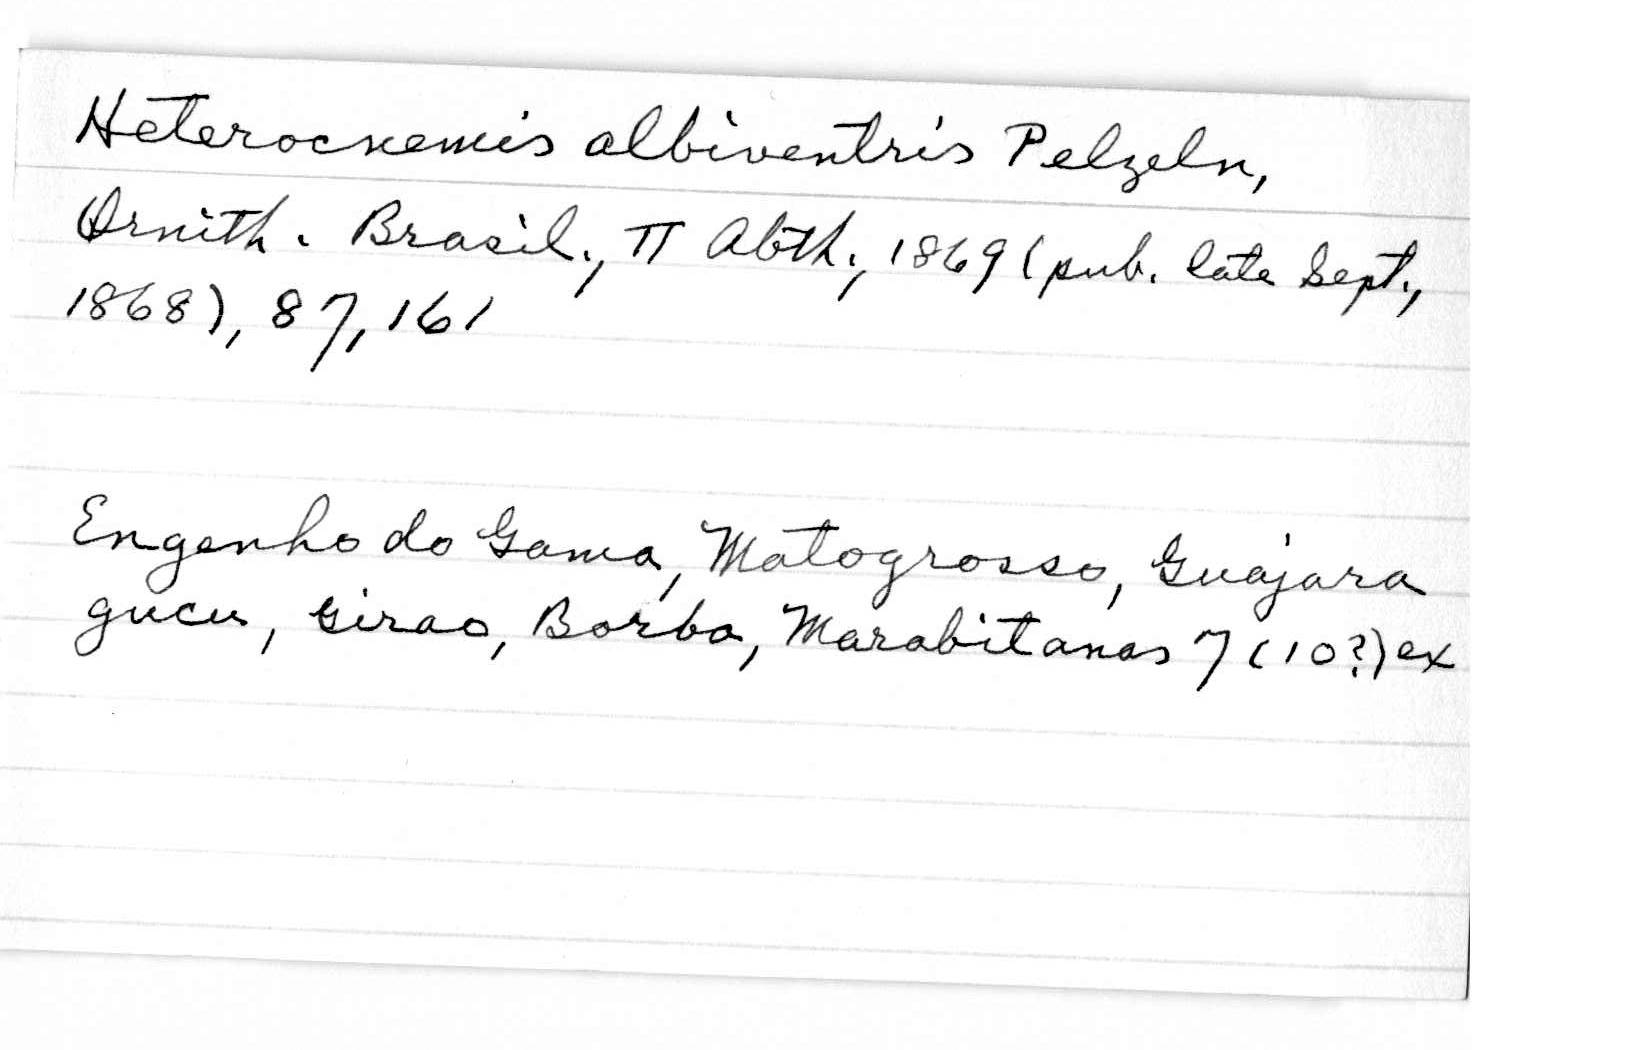 Heterocnemis albiventris Pelzeln,
Ornith. Brasil., II Abth., 1869 (pub. late Sept.,
1868), 87, 161
Engenho do Gama, Matogrosso, Guajara
gucu, Girao, Borba, Marabitanas 7 (10?) ex